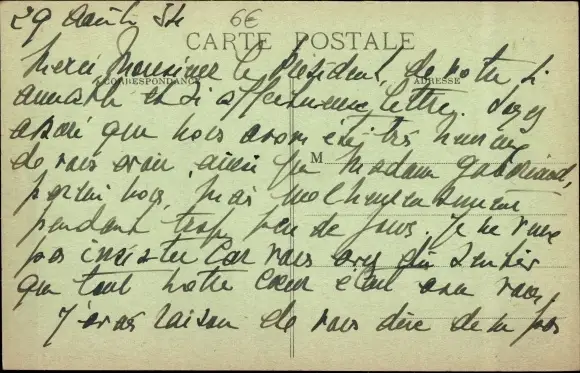 29 août 34
6€
CARTE POSTALE
CORRESPONDANCE
ADRESSE
M
Merci Monsieur le Président, de votre si
aimable et si affectueuse lettre. Soyez
assuré que nous avons été très heureux
de vous avoir, ainsi que Madame
parmi nous, mais malheureusement
pendant trop peu de jours. Je ne veux
pas insister car vous avez dû sentir
que tout notre cœur était avec vous.
J'avais raison de vous dire de ne pas